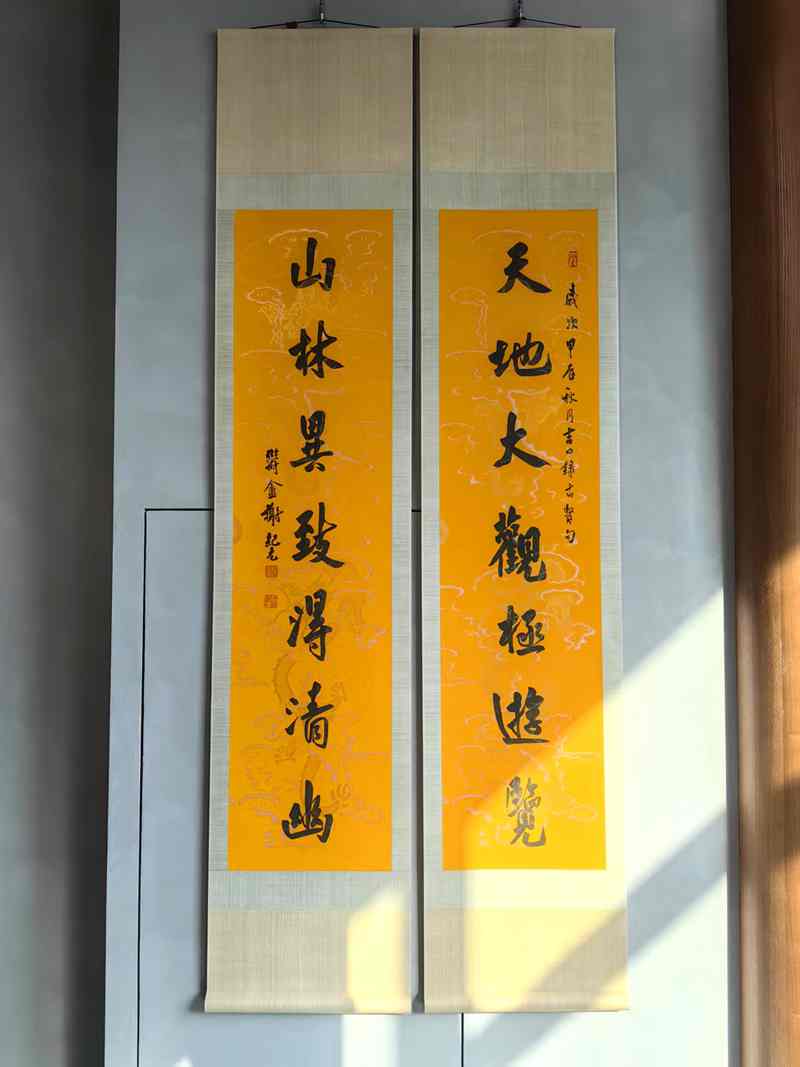 天地大觀極遊覽
歲次甲辰秋月吉日錄古賢句
山林異致得清幽
金谢紀元